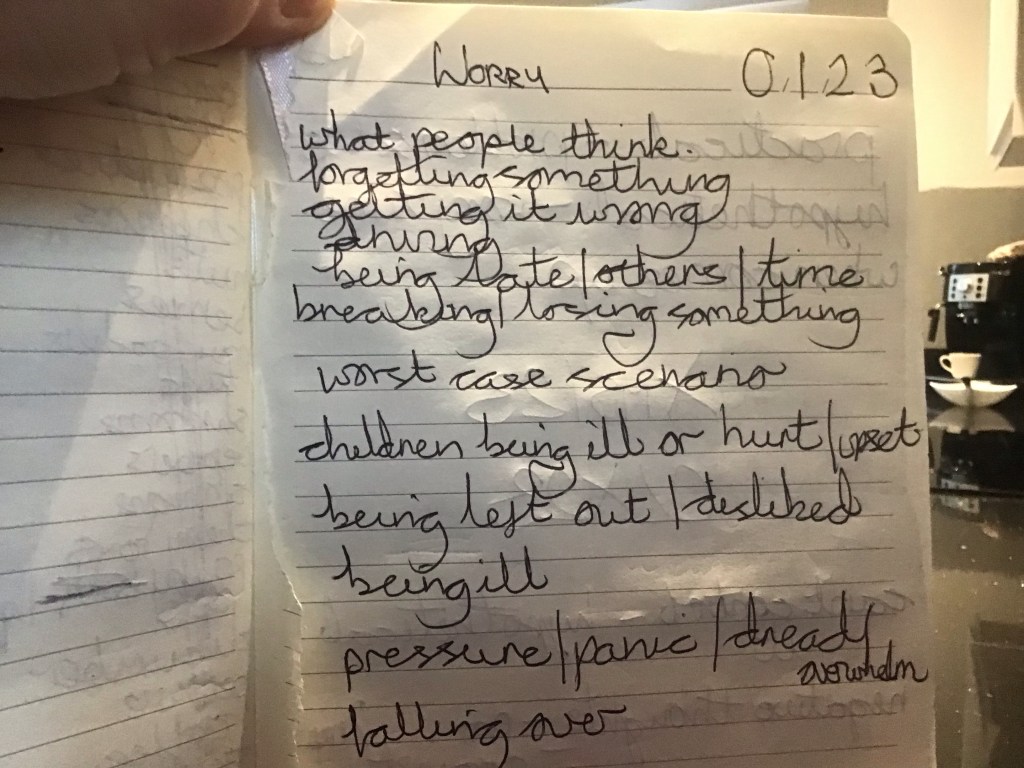 WORRY 0.1.2.3
what people think.
forgetting something
getting it wrong
being late/others/time
breaking/losing something
worst case scenario
children being ill or hurt/upset
being left out/disliked
being ill
pressure/panic/dread/
overwhelm
falling over